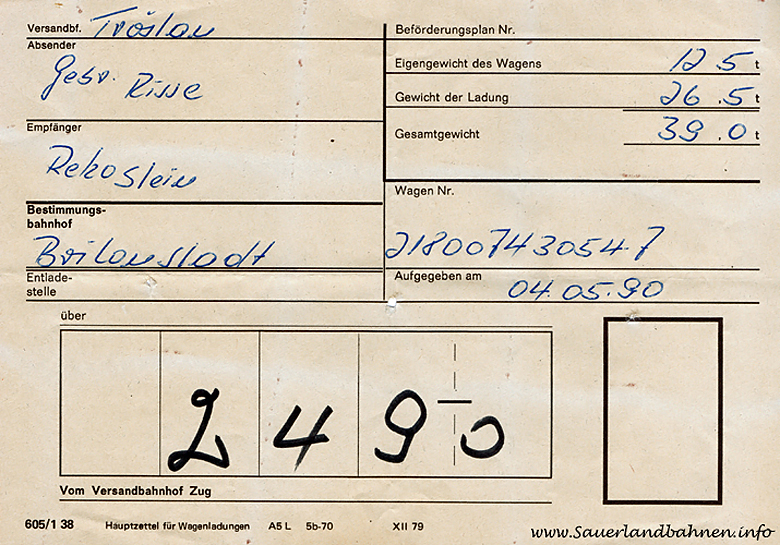 Versandbf. Tröstau
Absender
Gebr. Risse
Empfänger
Rekostein
Bestimmungs-
bahnhof
Brilonstadt
Entlade-
stelle
Beförderungsplan Nr.
Eigengewicht des Wagens 12.5 t
Gewicht der Ladung 26.5 t
Gesamtgewicht 39.0 t
Wagen Nr.
218007430547
Aufgegeben am
04.05.90
über
2 4 9 0
Vom Versandbahnhof Zug
605/1 38 Hauptzettel für Wagenladungen A5 L 5b-70 XII 79
www.Sauerlandbahnen.info